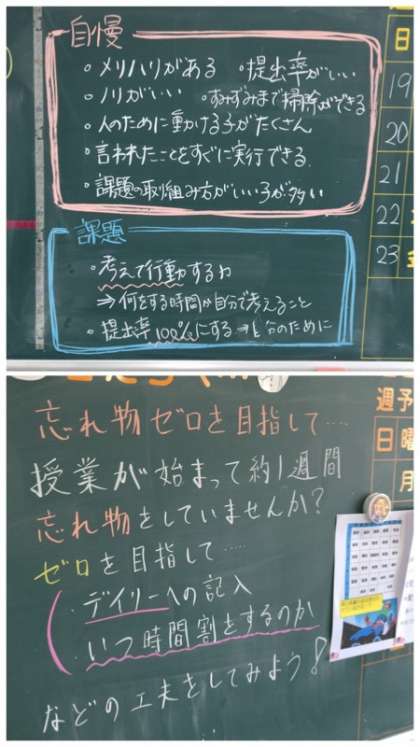 自慢
・メリハリがある ・提出率がいい
・ノリがいい ・すみずみまで掃除ができる
・人のために動かける子がたくさん
・言われたことをすぐに実行できる
・課題の取り組み方がいい子が多い
課題
・考えて行動する力
⇒何をする時間か自分で考えること
・提出率100%にする→自分のために
日
19
20
21
22
23
忘れ物ゼロを目指して……
授業が始まって約1週間
忘れ物をしていませんか?
ゼロを目指して……
・デイリーへの記入
・いつ時間割をするのか
などの工夫をしてみよう!
週予
日 曜
月